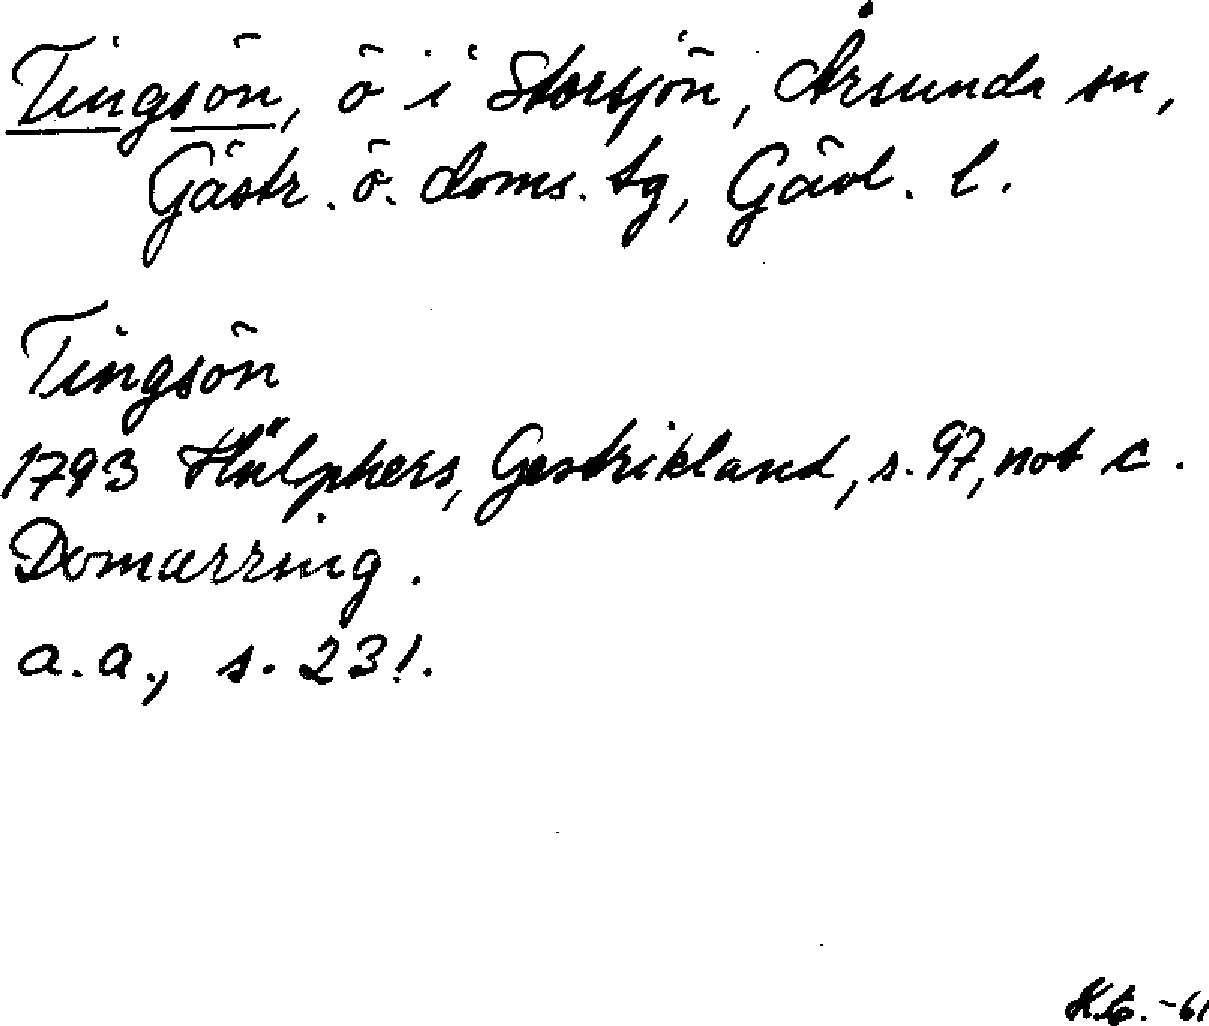 Tingsön, ö i Storsjön, Årsunda sn,
Gästr. ö. doms. tg, Gävl. l.
Tingsön
1793 Hülphers, Gestrikland, s. 97, not c.
Domarring.
a.a., s. 231.
-61